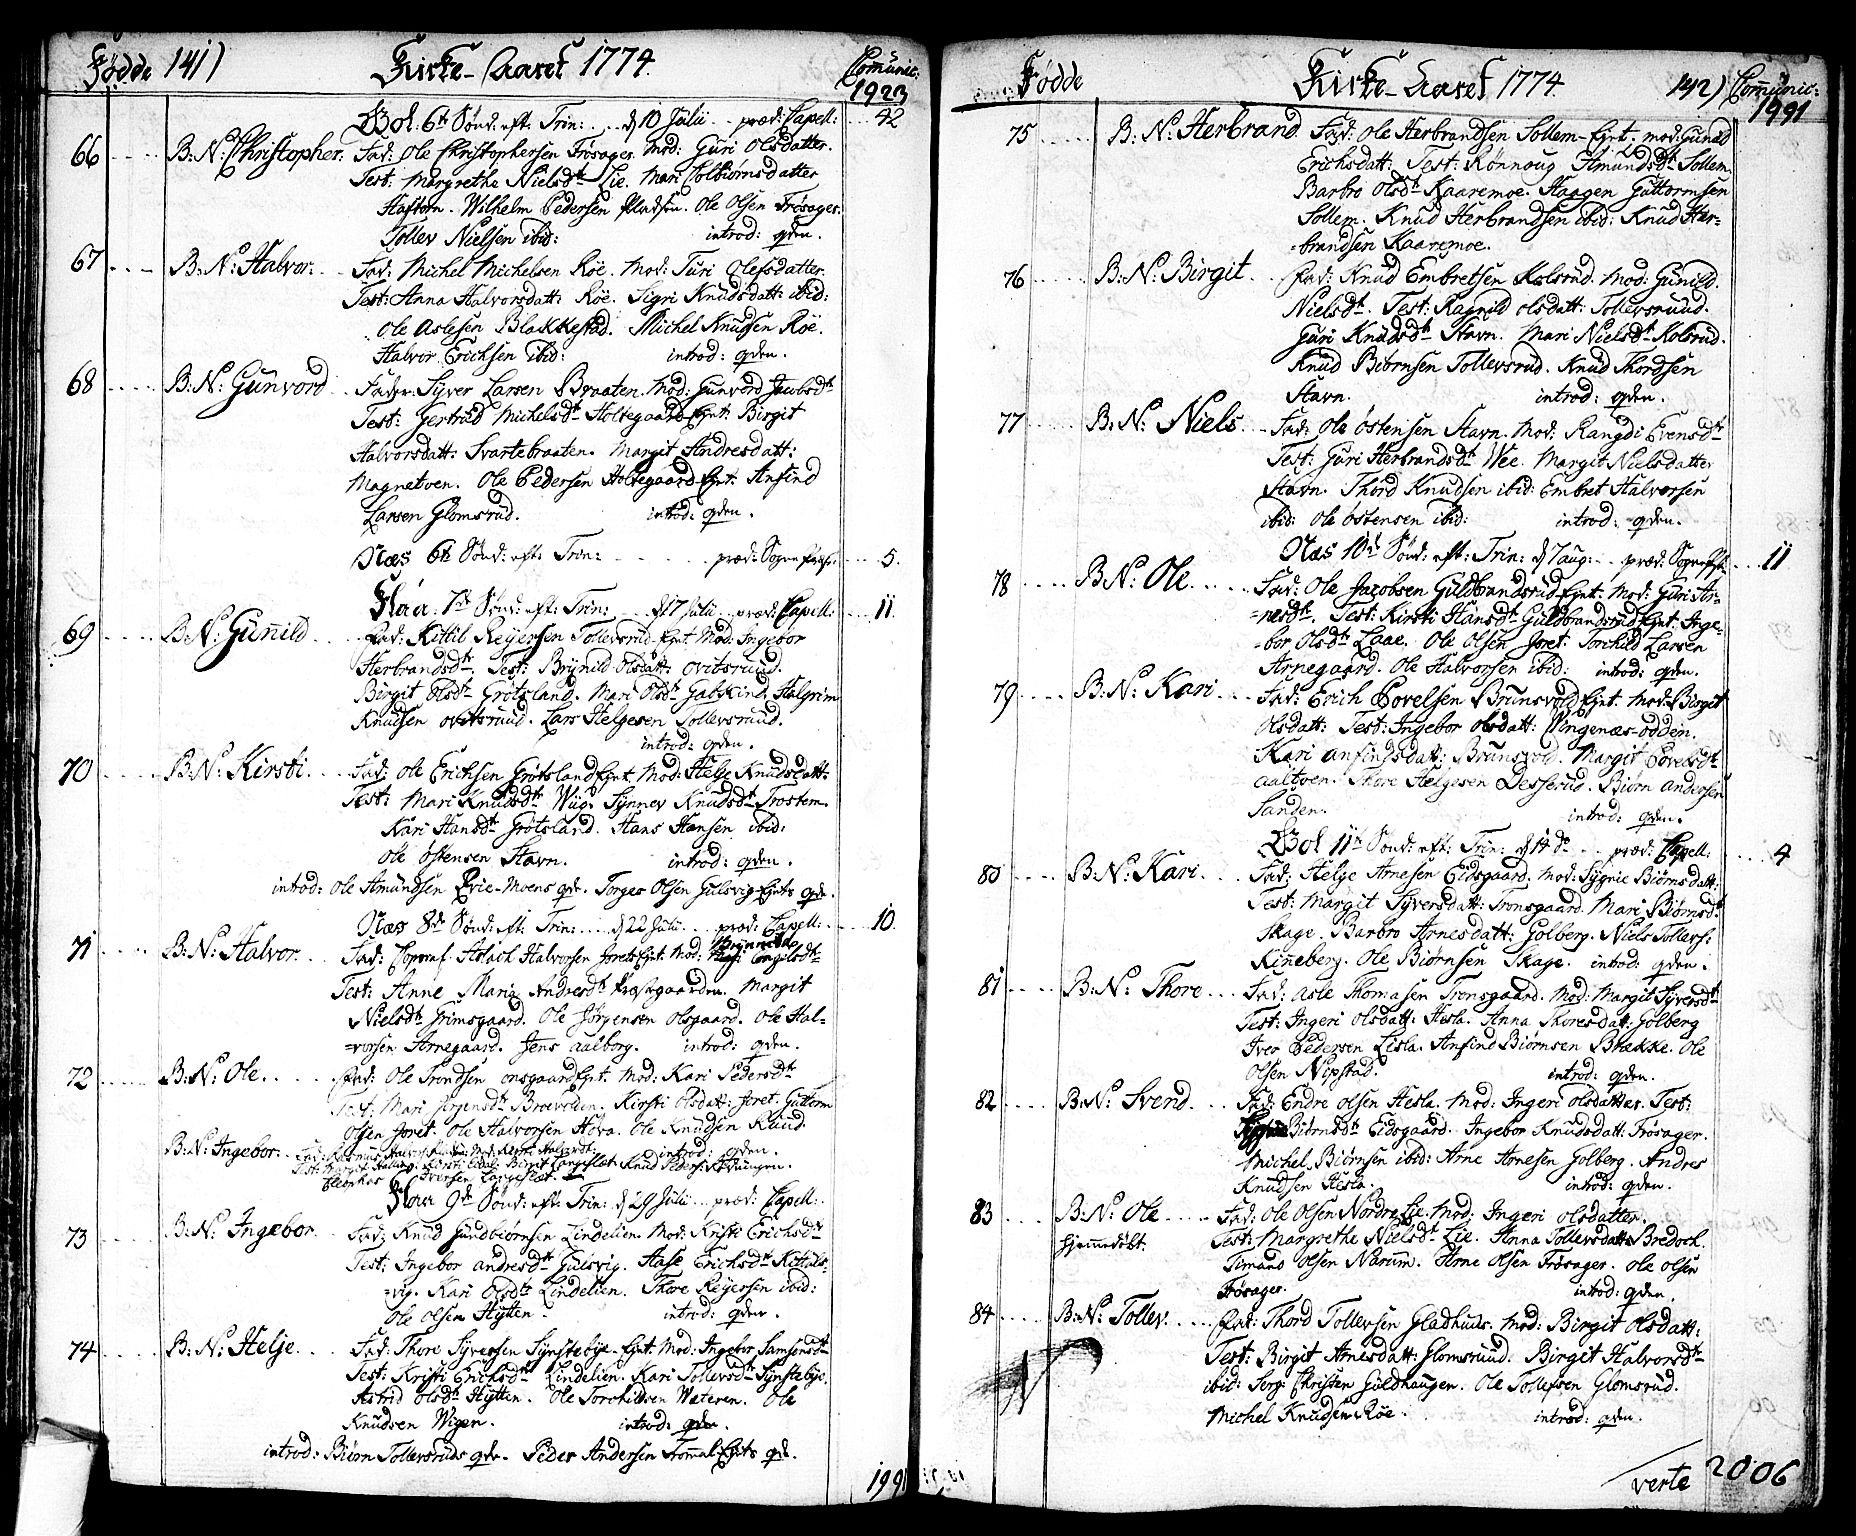 Födde 141) Kirke-Aaret 1774. Comunic:
1923
Gol. 6te Sönd: eft: Trin: .... d 10 Julii ... præd: Capell: ... 42
66 .... B: N: Christopher. Fad: Ole Christophersen Frösager. Mod: Guri Olsdatter.
Test: Margrethe Nielsdtr Lie. Mari Colbiörnsdatter
Haftorn. Wilhelm Pedersen Ole Olsen Frösager.
Tollev Nielsen ibid: introd: qvden.
67 .... B: N: Halvor. Fad: Michel Michelsen Röe. Mod: Turi Olefsdatter.
Test: Anna Halvorsdatt: Röe. Sigri Knudsdatt: ibid:
Ole Aslesen Blakkestad. Michel Knudsen Röe.
Halvor Erichsen ibid: introd: qvden.
68 .... B: N: Gunvord Fader: Syver Larsen Braaten. Mod: Gunvord Jacobsdtr
Test: Gertrud Michelsdtr Holtegaard Eynt: Birgit
Halvorsdatt: Svartebraaten. Margit Andresdatt:
Magnetven. Ole Pedersen Holtegaard Eynt: Anfind
Larsen Glomsrud. introd: qvden.
Næs 6te Sönd: eft: Trin: ..... præd: Sogne ... 5.
Flaa 7de Sönd: eft: Trin: .... d 17 Julii præd: Capell: ... 11.
69 .... B: N: Gunild Fad: Kittil Reyersen Tollevsrud Eynt Mod: Ingebor
Herbrandsdtr. Test: Brynild Olsdatt: Ovitsruud.
Birgit Olsdtr Grötsland. Mari Olsdtr Gabskind. Halgrim
Knudsen Ovitsruud. Lars Helgesen Tollevsruud.
introd: qvden.
70 .... B: N: Kirsti. Fad: Ole Erichsen Grötsland Eynt. Mod: Helje Knudsdatt:
Test: Mari Knudsdtr Wiig. Synnev Knudsdtr Trostem.
Kari Hansdtr Grötsland. Hans Hansen ibid:
Ole Östensen Stavn. introd: qvden.
introd: Ole Amundsen Evie-Moens qvde. Torger Olsen Gulsvig Eynts qvde.
Næs 8de Sönd: eft: Trin: .... d 22 Julii ... præd: Capell: ... 10.
71 .... B: N: Halvor. Fad: Aslach Halvorsen Joret Eynt. Mod: Engelsdtr
Test: Anne Maria Andresdtr Præstgaarden. Margit
Nielsdtr Grimsgaard. Ole Jörgensen Olsgaard. Ole Hal-
=vorsen Arnegaard. Jens Aalborg. introd: qvden.
72 .... B: N: Ole. Fad: Ole Trondsen Onsgaard Eynt. Mod: Kari Pedersdtr
Test: Mari Jörgensdtr Broevolden. Kirsti Olsdatt: Joret. Guttorm
Olsen Joret. Ole Halvorsen Hova. Ole Knudsen Ruud.
introd: qvden.
B: N: Ingebor.
Flaa 9de Sönd: eft: Trin: d 29 Julii ... præd: Capell:
73 .... B: N: Ingebor. Fad: Knud Gundbiörnsen Lindelien. Mod: Kristi Erichsdtr
Test: Ingebor Andresdtr Gulsvig. Hase Erichsdtr Kittils-
=vig. Kari Olsdtr Lindelien. Thore Reyersen ibid:
Ole Olsen Hytten. introd: qvden.
74 .... B: N: Helje. Fad: Thore Syversen Synstebye Eynt. Mod: Ingebor Samsonsdtr
Test: Kristi Erichsdtr Lindelien. Kari Tollevsdtr Synstebye.
Astrid Olsdtr Hytten. Ole Torchildsen Wateren. Ole
Knudsen Wigen. introd: qvden.
introd: Biörn Tollevsruds qvde. Peder Andersen Eynts qvde.
1991
Födde Kirke-Aaret 1774 142) Comunic:
1991
75 .... B: N: Herbrand Fad: Ole Herbrandsen Sollem Eynt: mod: Gunild
Erichsdatt: Test: Rönnoug Amundsdtr Sollem
Barbro Olsdtr Kaaremoe. Haagen Guttormsen
Sollem. Knud Herbrandsen ibid: Knud Her-
=brandsen Kaaremoe.
76 .... B: N: Birgit. Fad: Knud Embretsen Kolsrud. Mod: Gunild
Nielsdtr. Test: Ragnild Olsdatt: Tollevsruud.
Guri Knudsdtr Stavn. Mari Nielsdtr Kolsrud.
Knud Biörnsen Tollevsrud. Knud Thordsen
Stavn. introd: qvden.
77 .... B: N: Niels. Fad: Ole Östensen Stavn. Mod: Rangdi Evensdtr
Test: Guri Herbrandsdtr Wee. Margit Nielsdatter
Stavn. Thord Knudsen ibid: Embret Halvorsen
ibid: Ole Östensen ibid: introd: qvden.
Næs 10de Sönd: eft: Trin: d 7 Aug: præd: Sogne ... 11
78 .... B: N: Ole .... Fad: Ole Jacobsen Guldbrandsrud Eynt. Mod: Guri Ar-
=nesdtr. Test: Kirsti Hansdtr Guldbrandsrud Eynt. Inge-
=bor Olsdtr Laae. Ole Olsen Joret. Torchild Larsen
Arnegaard. Ole Halvorsen ibid: introd: qvden.
79 .... B: N: Kari. Fad: Erich Povelsen Brunsvold Eynt. Mod: Birgit
Olsdatt: Test: Ingebor Olsdatt: Wingenæs-odden.
Kari Anfindsdatt: Brunsvold. Margit Povelsdtr
Aaltven. Thore Helgesen Desserud. Biörn Andersen
Sanden. introd: qvden.
Gol 11te Sönd: eft: Trin: d 14 do ... præd: Capell: .... 4
80 .... B: N: Kari. Fad: Helge Arnesen Eidsgaard. Mod: Sygnie Biörnsdatt:
Test: Margit Syversdatt: Tronsgaard. Mari Biörnsdtr
Skage. Barbro Arnesdatt: Golberg. Niels Tollevs:
Kinneberg. Ole Biörnsen Skage. introd: qvden.
81 .... B: N: Thore Fad: Asle Thomasen Tronsgaard. Mod: Margit Syversdtr
Test: Ingeri Olsdatt: Hesla. Anna Thoresdatt: Golberg
Iver Pedersen Lisla. Anfind Biörnsen Brække. Ole
Olsen Nipstad. introd: qvden.
82 .... B: N: Svend. Fad: Endre Olsen Hesla. Mod: Ingeri Olsdatter. Test:
Biörnsdtr Eidsgaard. Ingebor Knudsdatt: Frösager.
Michel Biörnsen ibid: Arne Arnesen Golberg. Andres
Knudsen Hesla. introd: qvden.
83 .... B: N: Ole .... Fad: Ole Olsen Nordre Lie. Mod: Ingeri Olsdatter.
hjemmedöbt. Test: Margrethe Nielsdtr Lie. Anna Tollevsdatt: Bredoch.
Timand Olsen Narum. Arne Olsen Frösager. Ole Olsen
Frösager. introd: qvden.
84 .... B: N: Tollev. Fad: Thord Tollevsen Gladhuus. Mod: Birgit Olsdatt:
Test: Birgit Arnesdatt: Glomsruud. Birgit Halvorsdtr
ibid: Serg: Christen Guldhaugen. Ole Tollefsen Glomsrud.
Michel Knudsen Röe. introd: qvden.
verte 2006